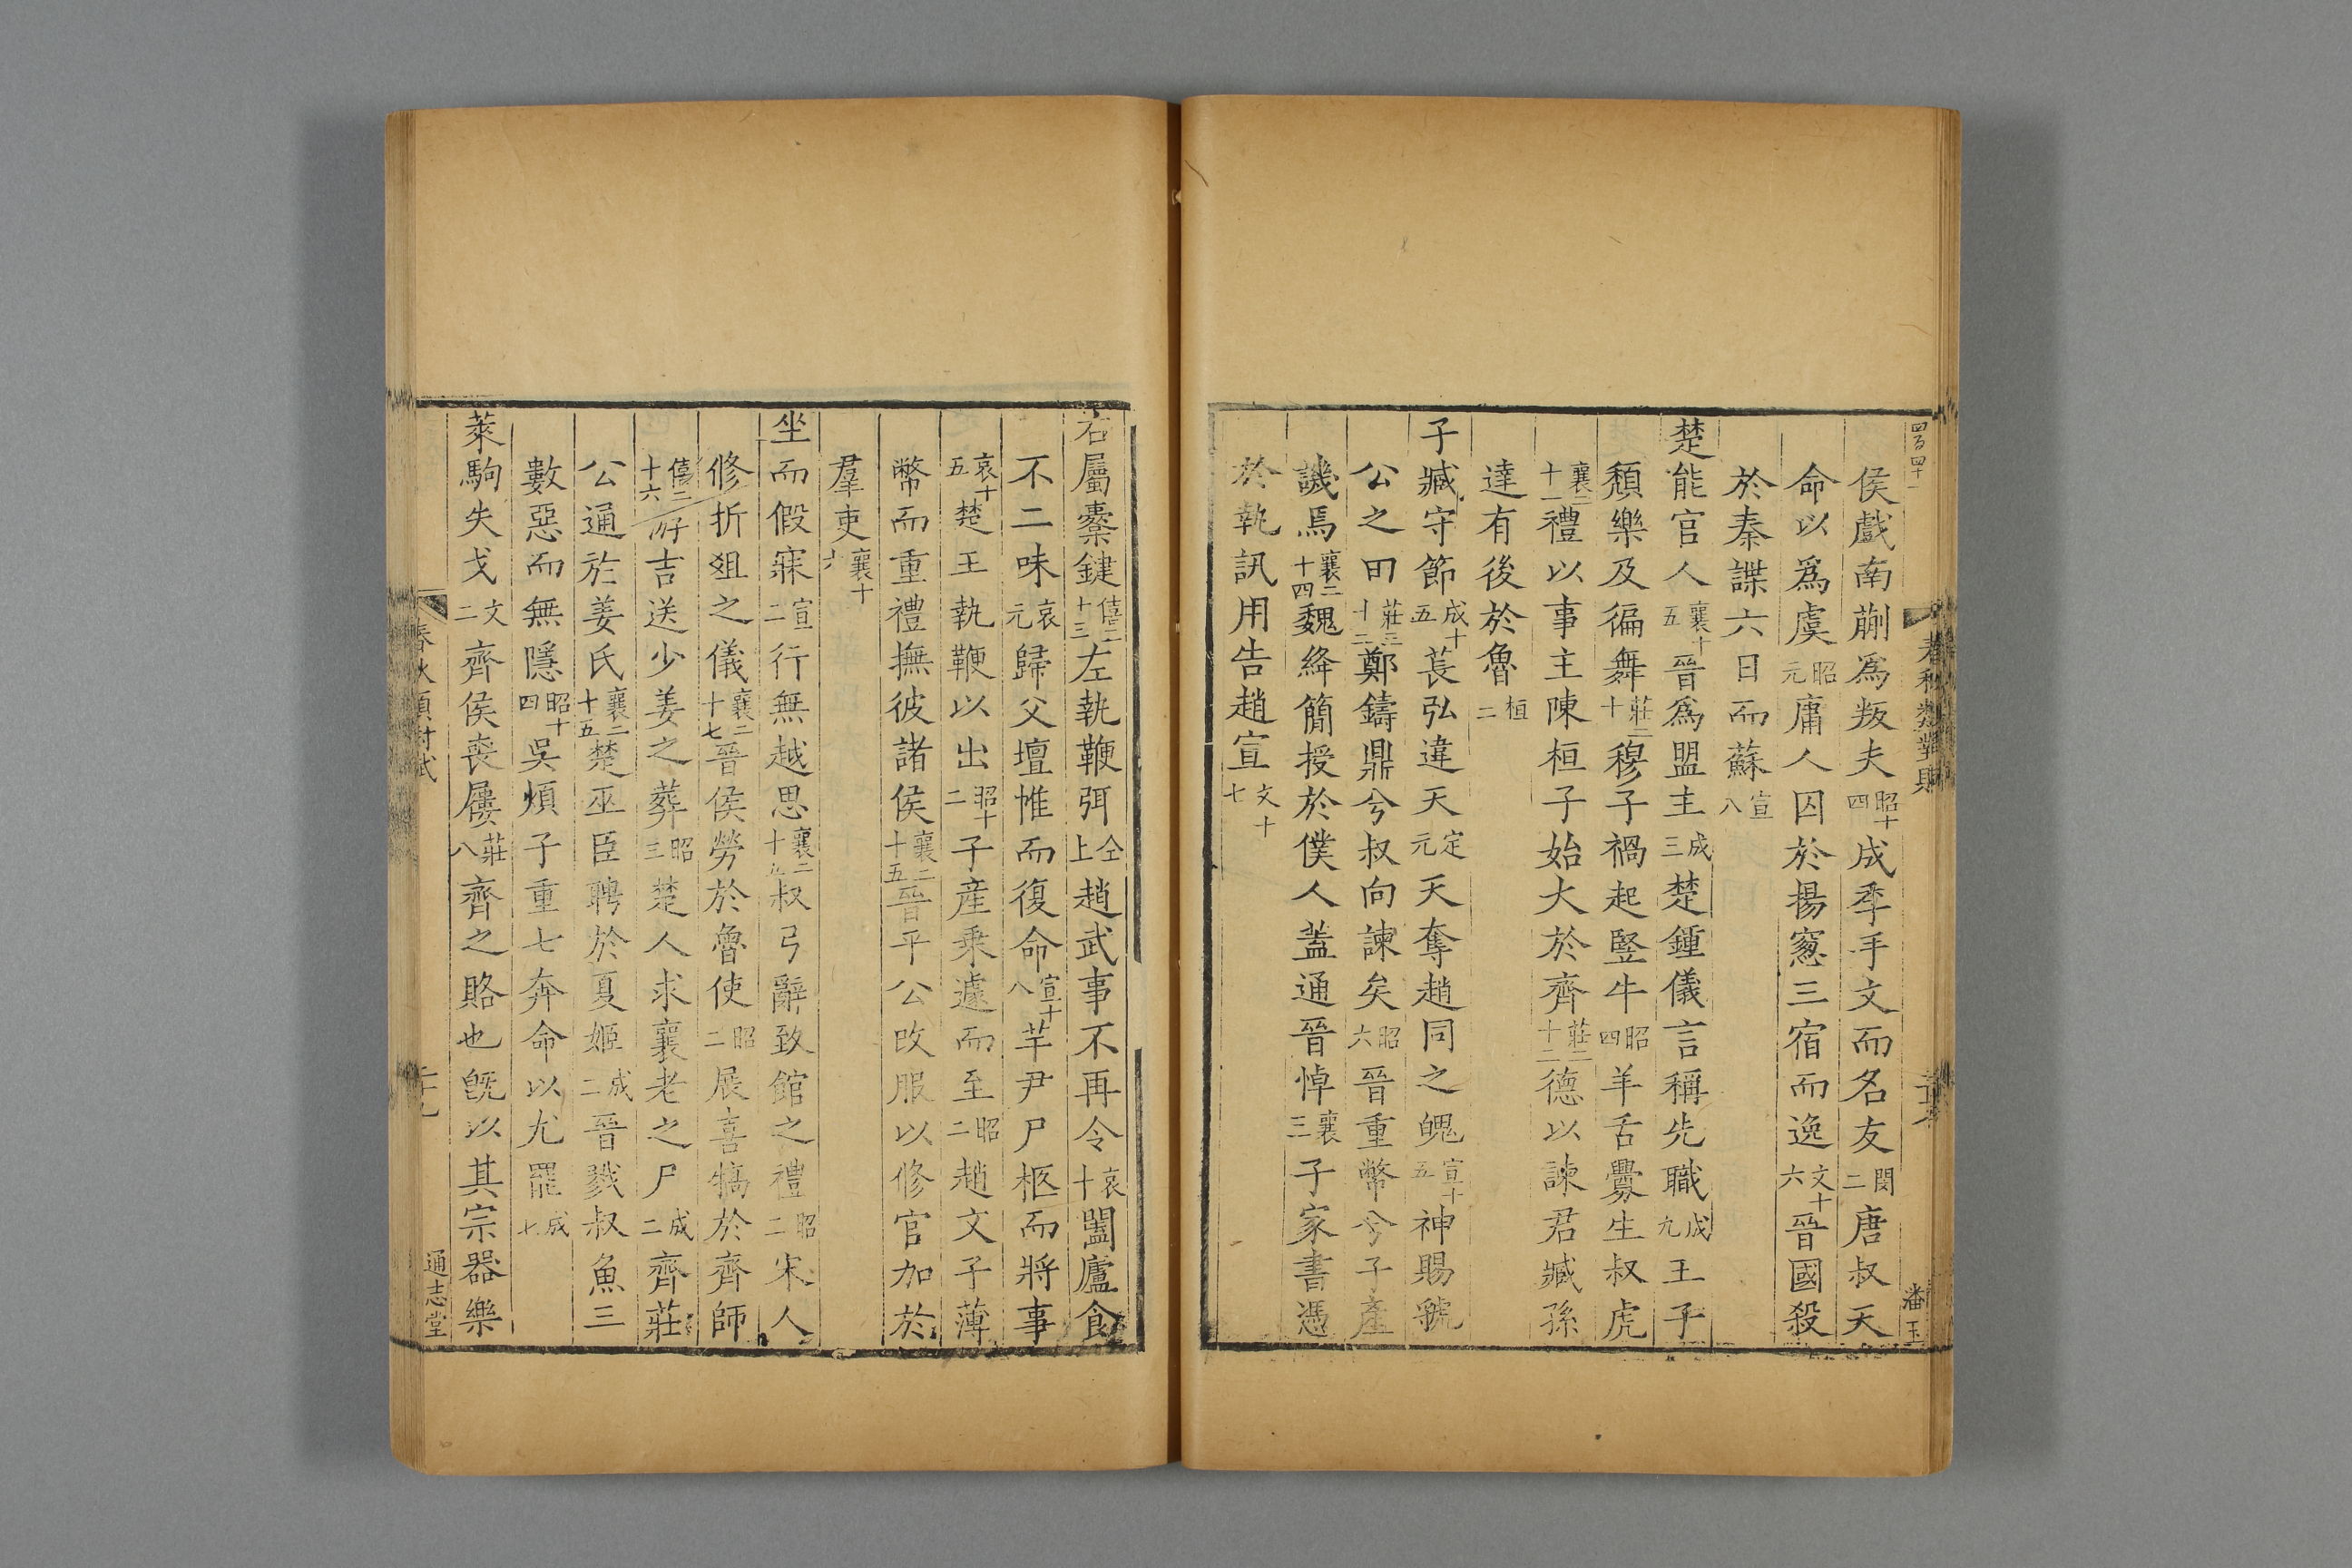 四百四十一
侯戲南蒯爲叛夫昭十四成季手文而名友閔二唐叔天
命以爲虞昭元庸人囚於揚窻三宿而逸文十六晉國殺
於秦諜六日而蘇宣八
楚能官人襄十五晉爲盟主成三楚鍾儀言稱先職成九王子
頽樂及徧舞莊二十穆子禍起竪牛昭四羊舌釁生叔虎
襄二十一禮以事主陳桓子始大於齊莊二十二德以諫君臧孫
達有後於魯桓二
子臧守節成十五萇弘違天定元天奪趙同之魄宣十五神賜虢
公之田莊三十二鄭鑄鼎兮叔向諫矣昭六晉重幣兮子產
譏焉襄二十四魏絳簡授於僕人蓋通晉悼襄三子家書憑
於執訊用告趙宣文十七
春秋類對賦
潘玉
右屬櫜鍵僖二十三左執鞭弭仝上趙武事不再令哀十闔廬食
不二味哀元歸父壇帷而復命宣十八芋尹尸柩而將事
哀十五楚王執鞭以出昭十二子産乘遽而至昭二趙文子薄
幣而重禮撫彼諸侯襄二十五晉平公改服以修官加於
羣吏襄十六
坐而假寐宣二行無越思襄二十五叔弓辭致館之禮昭二宋人
修折爼之儀襄二十七晉侯勞於魯使昭二展喜犒於齊師
僖二十六游吉送少姜之葬昭三楚人求襄老之尸成二齊莊
公通於姜氏襄二十五楚巫臣聘於夏姬成二晉戮叔魚三
數惡而無隱昭十四吳煩子重七奔命以尤罷成七
萊駒失戈文二齊侯喪屨莊八齊之賂也旣以其宗器樂
春秋類對賦
二十九
通志堂